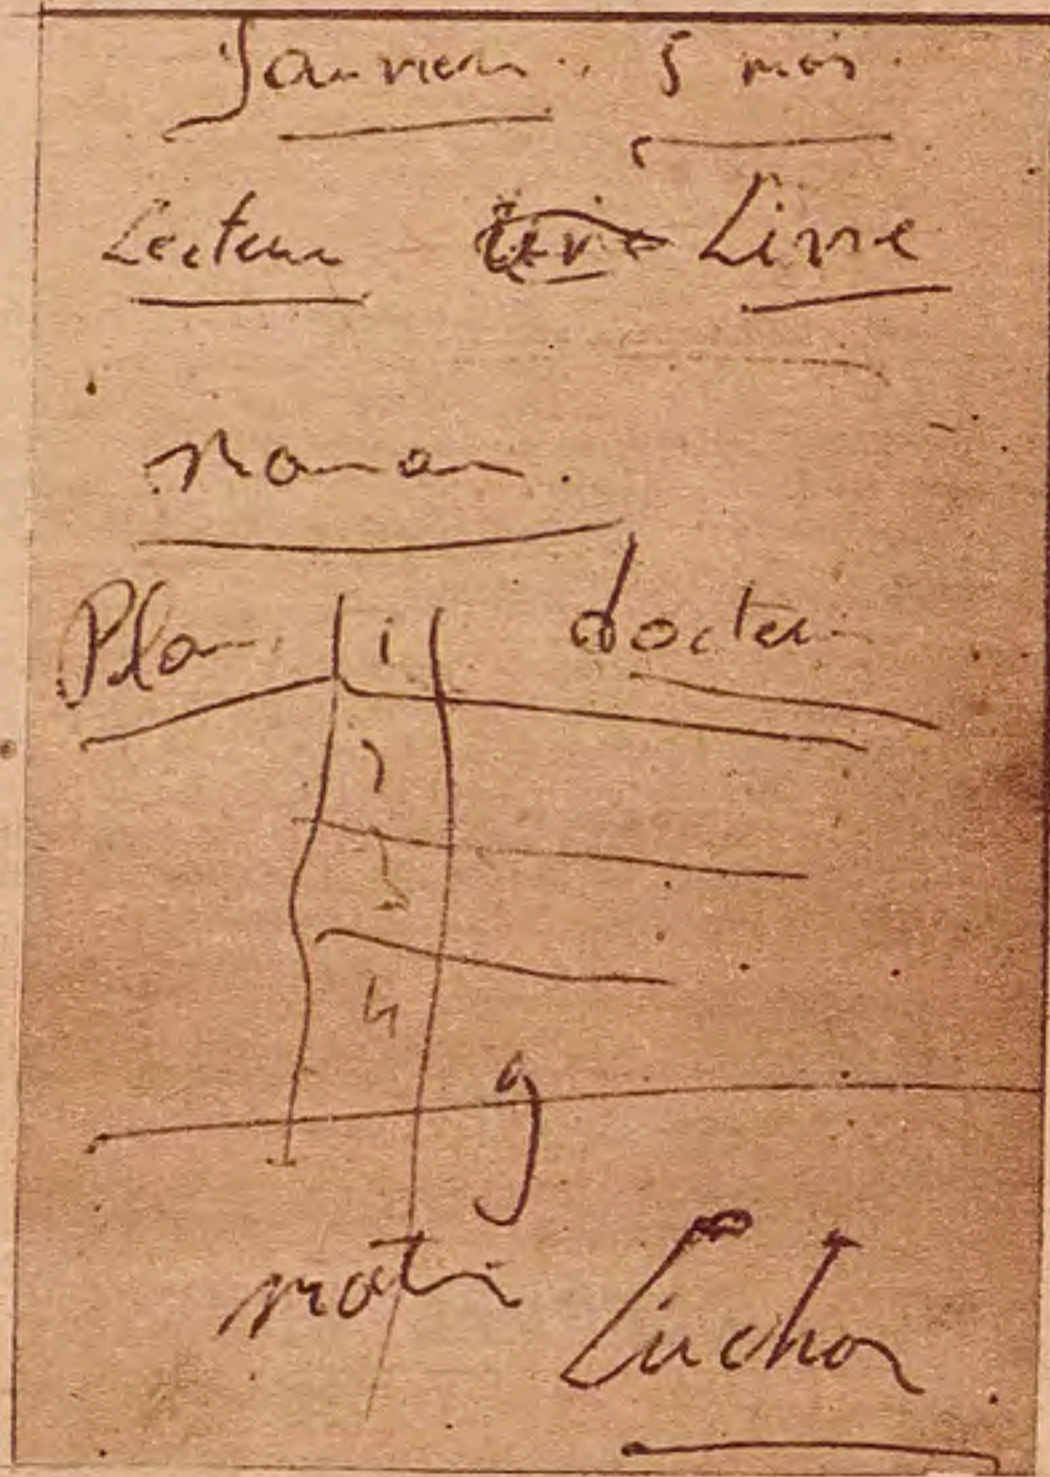 Janvier. 5 mois.
Lecteur Livre Livre
Roman.
Plan 1 docteur
2
3
4
9
matin Luchon